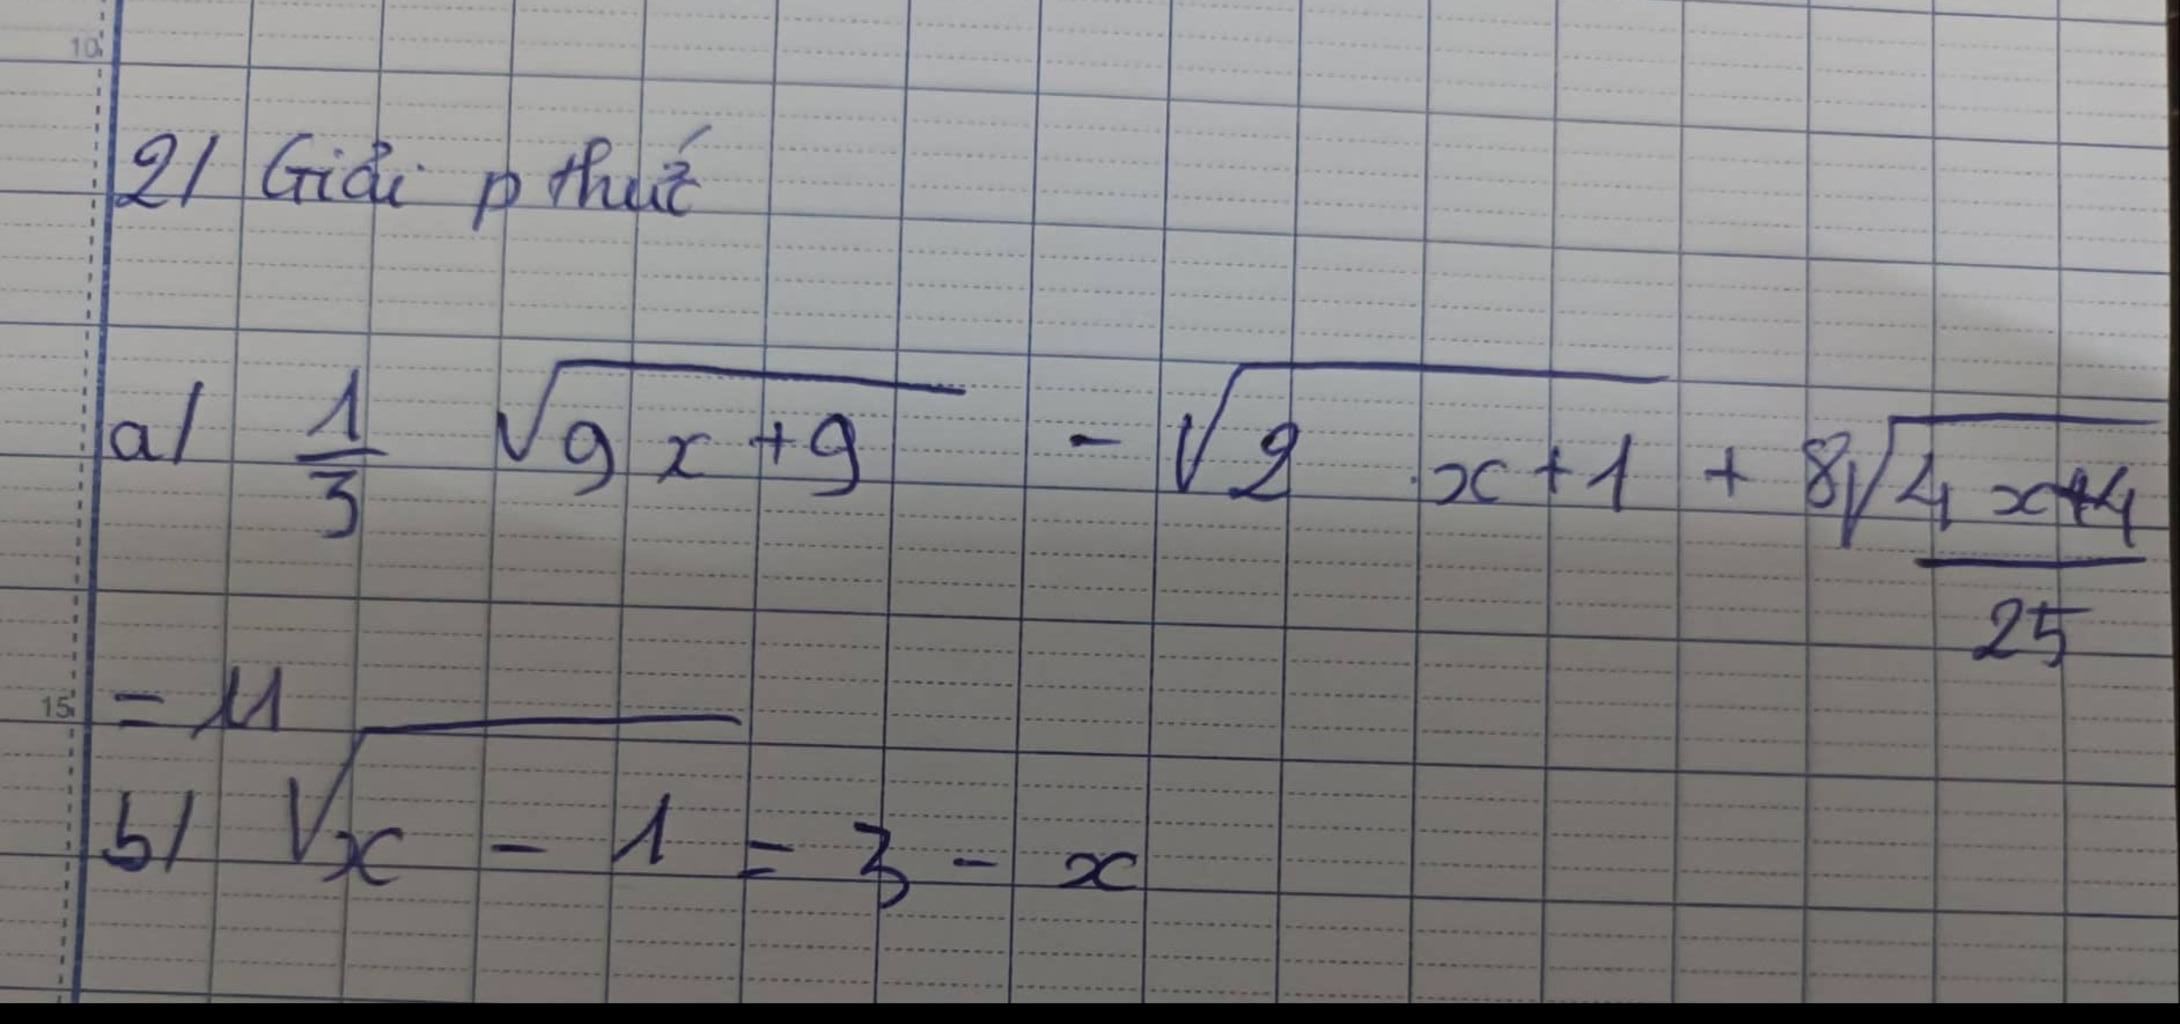 10
2/ Giải p thức
a/ 1/3 √(9x+9) - √(2 x+1) + 8√((4x+4)/25)
15 = 11
b/ √(x - 1) = 3 - x